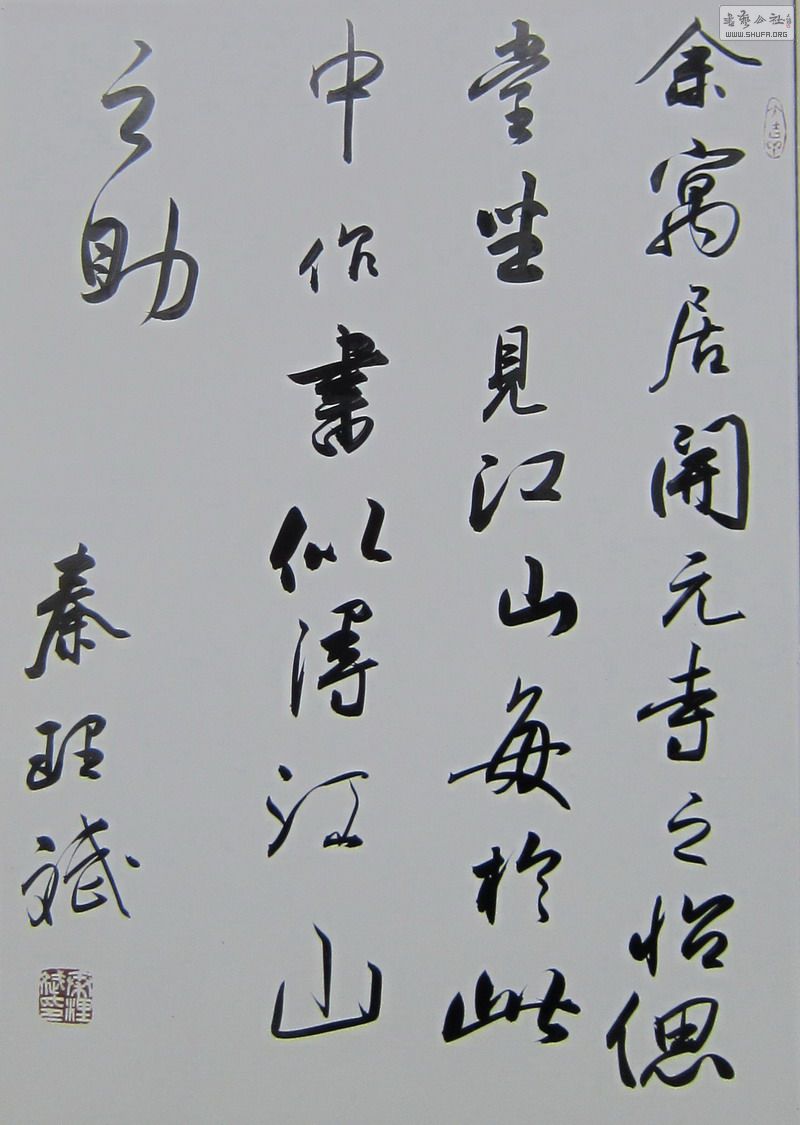 余寓居開元寺之怡偲
堂坐見江山每於此
中作書似得江山
之助
秦理斌
書藝公社
WWW.SHUFA.ORG